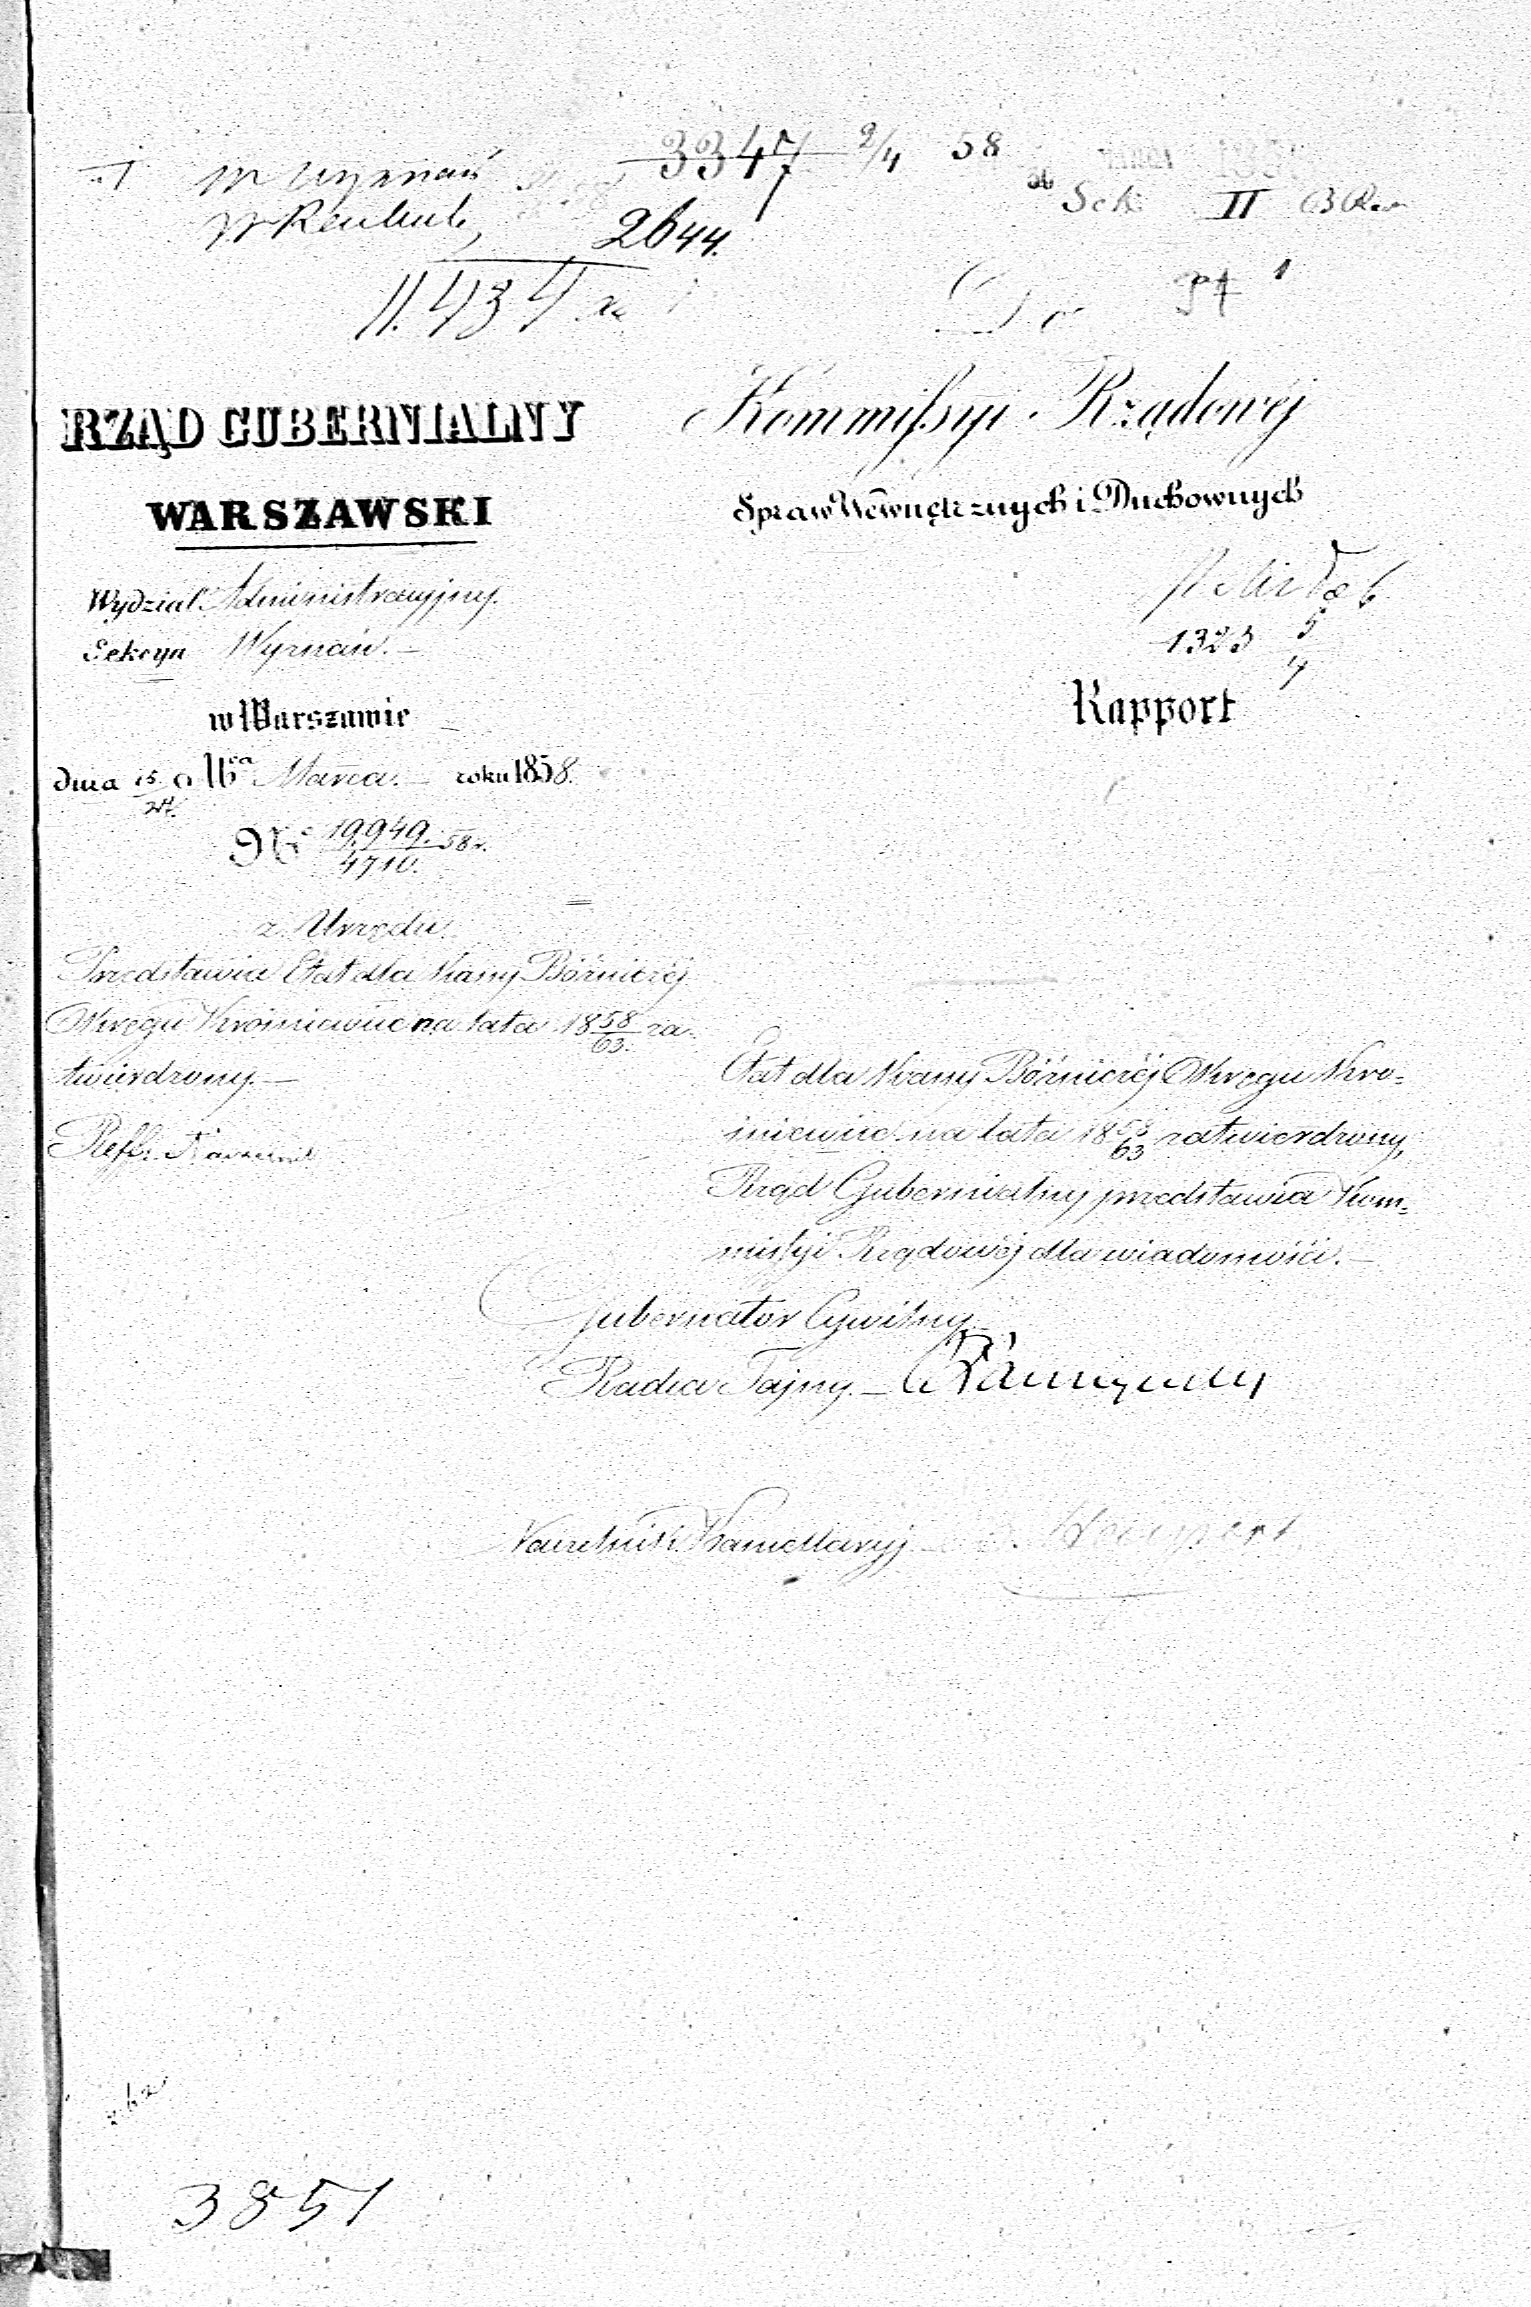 W Wyznań
3347 2/4 58
Sek: II
2644.
11.434
RZĄD GUBERNIALNY
WARSZAWSKI
Wydział Administracyjny.
Sekcya Wyznań. —
w Warszawie
dnia 15/27. Marca. — roku 1858.
No 19,949./4710. 58 r.
z Urzędu
Przedstawia Etat dla Kassy Bóźniczéj
Okręgu Krośniewice na lata 18 58/63. za-
twierdzony. —
Reff:
Kommissyi Rządowéj
Spraw Wewnętrznych i Duchownych
1323 5/4
Rapport
Etat dla Kassy Bóźniczéj Okręgu Kro=
śniewice na lata 18 58/63 zatwierdzony,
Rząd Gubernialny przedstawia Kom=
missyi Rządowéj dla wiadomości. —
Gubernator Cywilny
Radca Tajny. —
Naczelnik Kancellaryj
3851